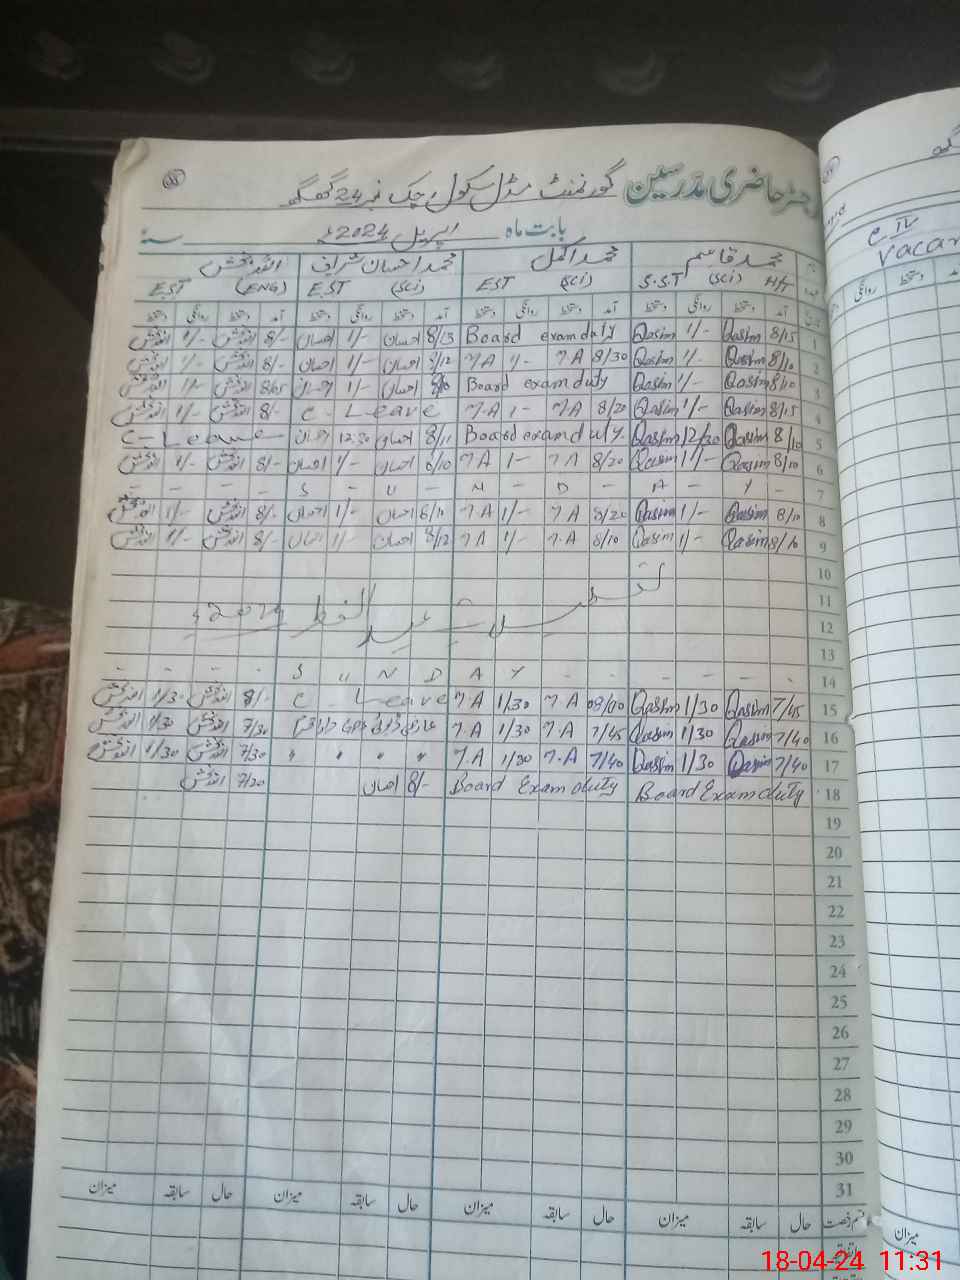 رجسٹر حاضری مدرسین گورنمنٹ مڈل سکول چک نمبر 24 گھگھ
بابت ماہ اپریل 2024ء سنہ
محمد قاسم محمد اکمل محمد احسان شریف اللہ بخش
S.S.T (Sci) H/T EST (Sci) EST (Sci) EST (ENG)
آمد دستخط روانگی دستخط آمد دستخط روانگی دستخط آمد دستخط روانگی دستخط آمد دستخط روانگی دستخط
1 8/15 Qasim 1/- Qasim Board exam duty 8/13 احسان 1/- احسان 8/- اللہ بخش 1/- اللہ بخش
2 8/10 Qasim 1/- Qasim 8/30 M.A 1/- M.A 8/12 احسان 1/- احسان 8/- اللہ بخش 1/- اللہ بخش
3 8/10 Qasim 1/- Qasim Board exam duty 8/10 احسان 1/- احسان 8/05 اللہ بخش 1/- اللہ بخش
4 8/15 Qasim 1/- Qasim 8/20 M.A 1- M.A C-Leave 8/- اللہ بخش 1/- اللہ بخش
5 8/10 Qasim 12/30 Qasim Board exam duty. 8/11 احسان 12:30 احسان C-Leave
6 8/10 Qasim 1/- Qasim 8/20 M.A 1- M.A 8/10 احسان 1/- احسان 8/- اللہ بخش 1/- اللہ بخش
7 - - - - S - U - N - D - A - Y -
8 8/10 Qasim 1/- Qasim 8/20 M.A 1/- M.A 8/11 احسان 1/- احسان 8/- اللہ بخش 1/- اللہ بخش
9 8/10 Qasim 1/- Qasim 8/10 M.A 1/- M.A 8/12 احسان 1/- احسان 8/- اللہ بخش 1/- اللہ بخش
10
11 تعطیلات عید الفطر 2024ء
12
13
14 - - - - S U N D A Y - - - - - -
15 7/45 Qasim 1/30 Qasim 08/00 M.A 1/30 M.A C. Leave 8/- اللہ بخش 1/30 اللہ بخش
16 7/40 Qasim 1/30 Qasim 7/45 M.A 1/30 M.A 7/30 اللہ بخش 1/30 اللہ بخش
17 7/40 Qasim 1/30 Qasim 7/40 M.A 1/30 M.A " " " " 7/30 اللہ بخش 1/30 اللہ بخش
18 Board Exam duty Board Exam duty 8/- احسان 7/20 اللہ بخش
19
20
21
22
23
24
25
26
27
28
29
30
31
قسم رخصت حال سابقہ میزان حال سابقہ میزان حال سابقہ میزان حال سابقہ میزان
اتفاقیہ
میزان
روانگی دستخط
C IV
18-04-24 11:31